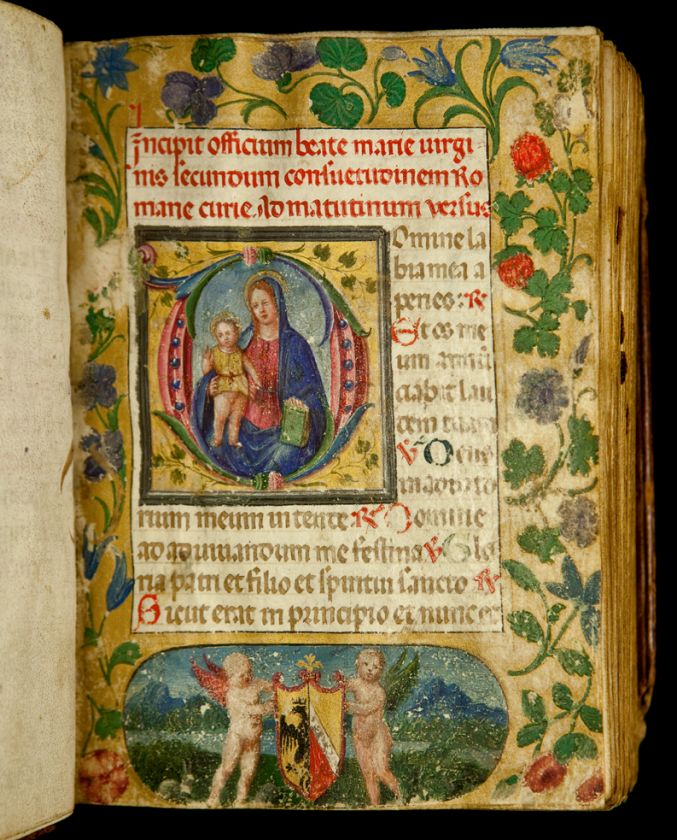 Incipit officium beate marie uirgi-
nis secundum consuetudinem Ro
mane curie. Ad matutinum versus
Domine la
bia mea a
peries: R
Et os me
um annū
ciabit lau
dem tuam
V Deus
in adiuto
rium meum intende R Domine
ad adiuuandum me festina V Glo
ria patri et filio et spiritui sancto R
Sicut erat in principio et nunc et